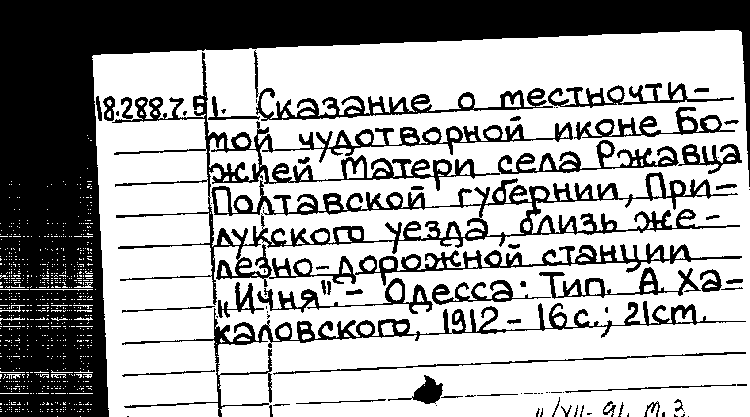 18.288.7.51. Сказание о местночти-
мой чудотворной иконе Бо-
жией Матери села Ржавца
Полтавской губернии, При-
лукского уезда, близь же-
лезно-дорожной станции
„Ичня".- Одесса: Тип. А. Ха-
каловского, 1912 - 16 с.; 21 ст.
11/XII- 91. М.З.